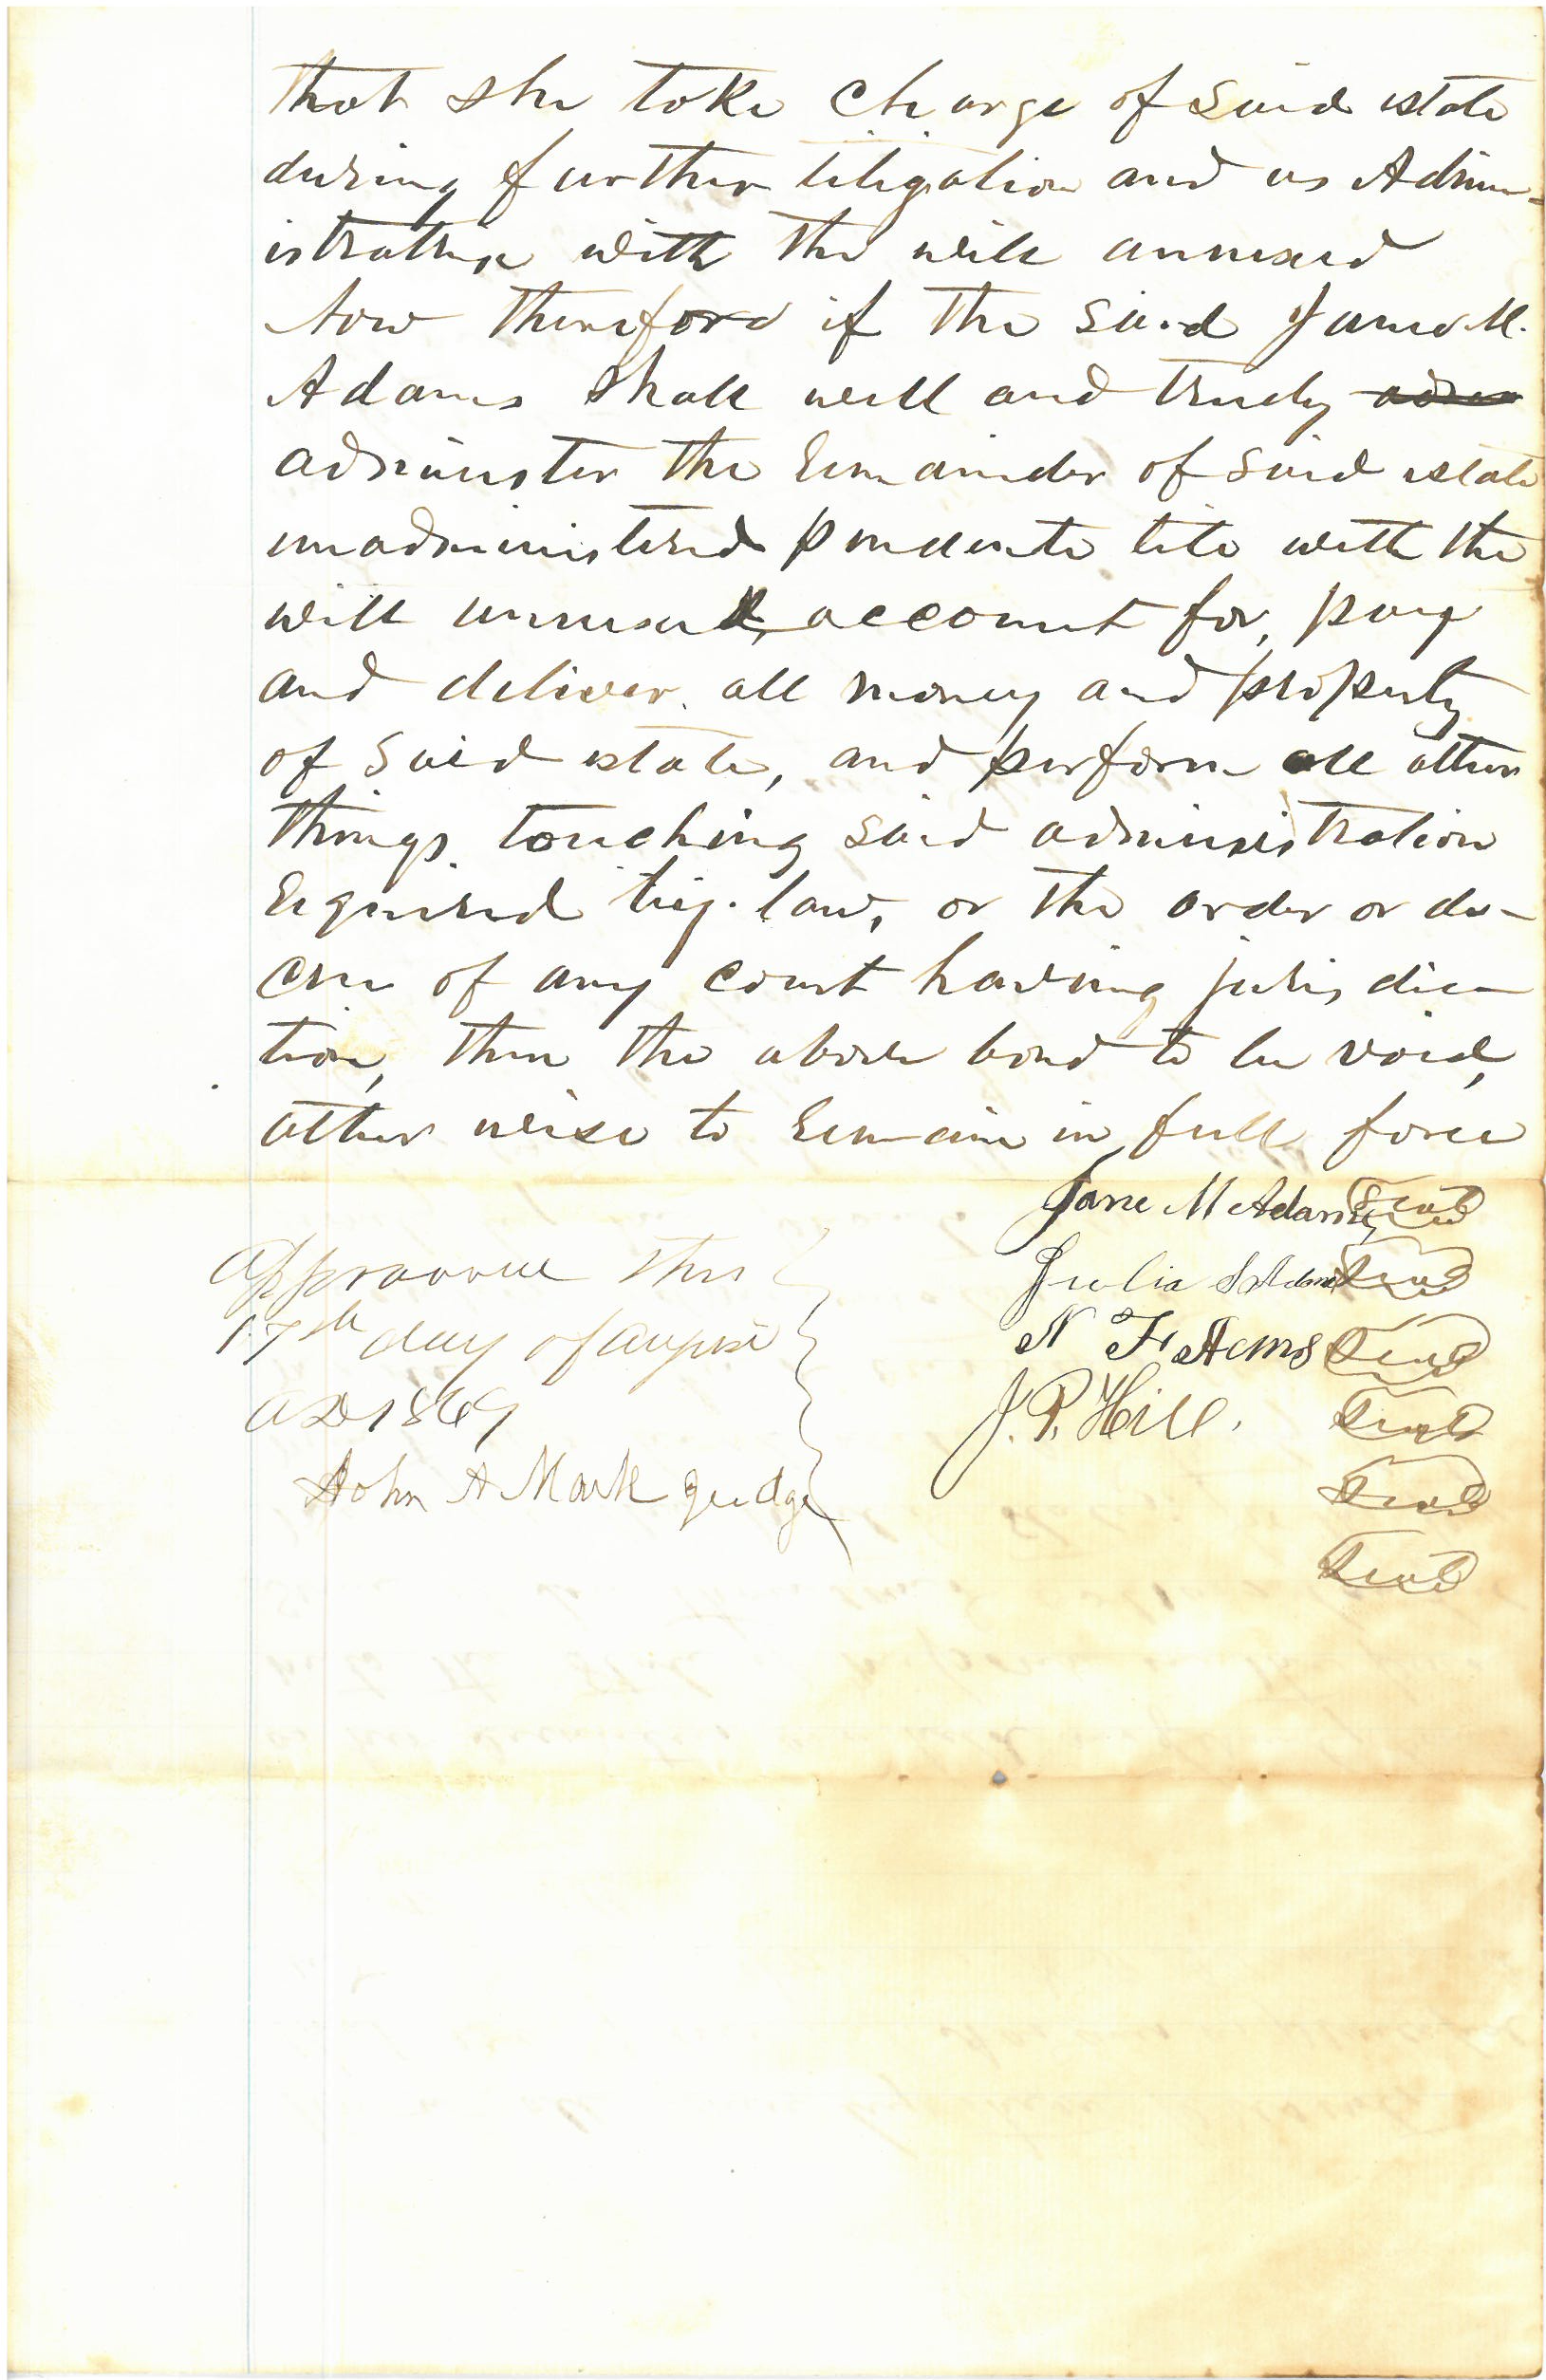 that she take charge of said estate
during further litigation and as Admin-
istratrix with the will annexed
Now therefore if the said Jane M.
Adams shall well and truely
administer the remainder of said estate
unadministered pendente lite with the
will annexed, account for, pay
and deliver all money and property
of said estate, and perform all other
things touching said administration
required by law, or the order or de-
cree of any court having jurisdic-
tion, then the above bond to be void,
other wise to remain in full force
Jane M Adams Seal
Julia S Adams Seal
N F Adms Seal
J. P. Hill. Seal
Seal
Seal
Approovue this
17th day of august
AD 1869
John A Mack Judge